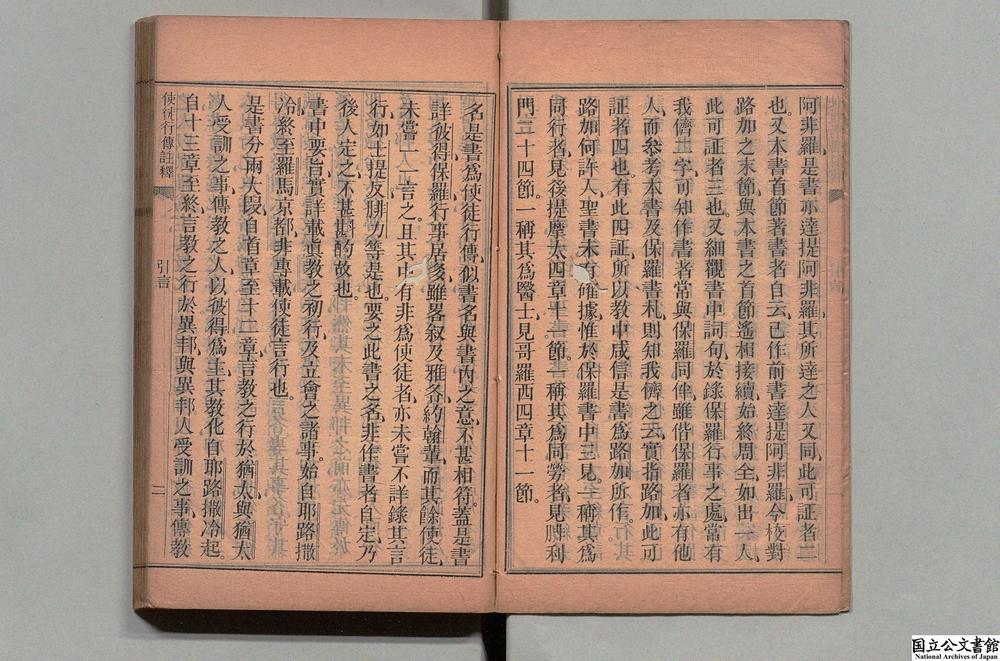 阿非羅、是書亦達提阿非羅、其所達之人又同、此可証者二
也。又本書首節、著書者自云、已作前書達提阿非羅、今校對
路加之末節、與本書之首節、遙相接續、始終周全、如出一人、
此可証者三也。又細觀書中詞句、於錄保羅行事之處、當有
我儕二字、可知作書者、常與保羅同伴、雖偕保羅者、亦有他
人、而參考本書、及保羅書札、則知我儕之云、實指路加、此可
証者四也。有此四証、所以教中咸信是書爲路加所作。
路加如何許人、聖書未有確據、惟於保羅書中三見、一稱其爲
同行者、見後提摩太四章十一節。一稱其爲同勞者、見腓利
門二十四節。一稱其爲醫士、見哥羅西四章十一節。
名是書爲使徒行傳、似書名與書內之意、不甚相符。蓋是書
詳彼得保羅行事居多、雖畧叙及雅各約翰輩、而其餘使徒、
未嘗一一言之。且其中有非爲使徒者、亦未嘗不詳錄其言
行、如士提反腓力等是也。要之此書之名、非作書者自定、乃
後人定之、不甚斟酌故也。
書中要旨、實詳載眞教之初行、及立會之諸事。始自耶路撒
冷、終至羅馬京都、非專載使徒言行也。
是書分兩大段、自首章至十二章、言教之行於猶太、與猶太
人受訓之事、傳教之人、以彼得爲主、其教化自耶路撒冷起。
自十三章至終、言教之行於異邦、與異邦人受訓之事、傳教
使徒行傳註釋
引言
二
国立公文書館
National Archives of Japan